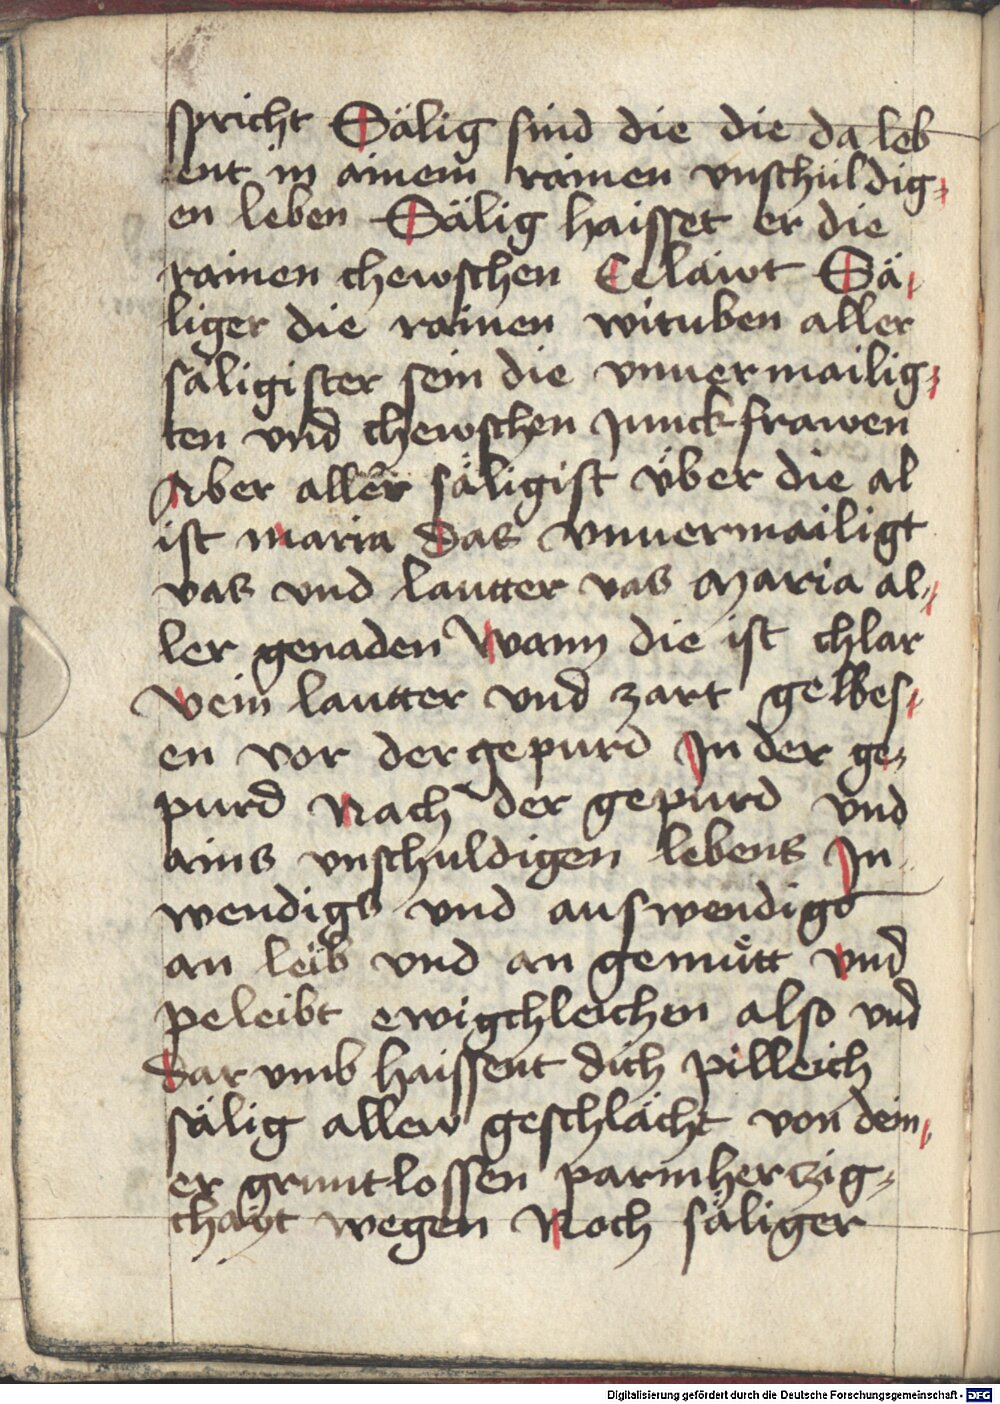 spricht Sälig sind die die da leb
ent in ainem rainen vnschuldig⸗
en leben Sälig haisset er die
rainen chewschen Eeläwt Sä⸗
liger die rainen wituben aller
säligister sein die vnuermailig⸗
ten vnd chewschen Junckfrawen
Aber aller säligist über die al
ist maria das vnuermailigt
vas vnd lautter vas Maria al⸗
ler genaden Wann die ist chlar
vein lautter vnd zart gelbes⸗
en vor der gepurd In der ge⸗
purd Nach der gepurd vnd
ains vnschuldigen lebens In
wendigs vnd auswendigs
an leib vnd an gemütt vnd
peleibt ewigchleichen also vnd
dar vmb haissent dich pilleich
sälig allew geschlächt von dein⸗
er gruntlossen parmherczig⸗
chayt wegen Noch säliger
Digitalisierung gefördert durch die Deutsche Forschungsgemeinschaft - DFG